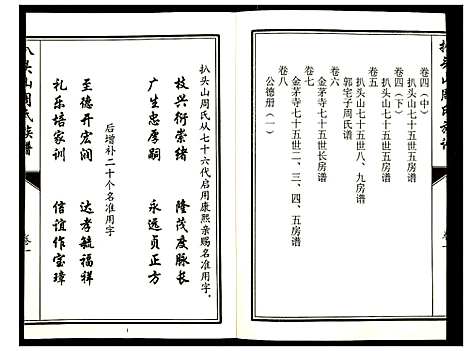 扒头山周氏宗谱
卷四（中）
扒头山七十五世七房谱
卷四（下）
扒头山七十五世八、九房谱
卷五
郭宅子周氏谱
卷六
金茅寺七十五世长房谱
卷七
金茅寺七十五世二、三、四、五房谱
卷八
公德册（一）
扒头山周氏从七十六代启用康熙亲赐名准用字，
枝兴衍崇绪　隆茂度脉长
广生忠厚嗣　永远贞正方
后增补二十个名准用字
至德开宏润　达孝毓福祥
礼乐培家训　信谊作宝璋
扒头山周氏族谱
卷一
1